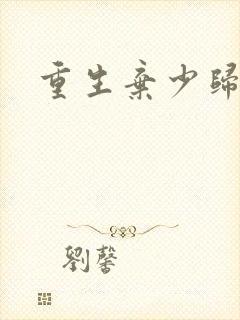 重生棄少歸
劉馨